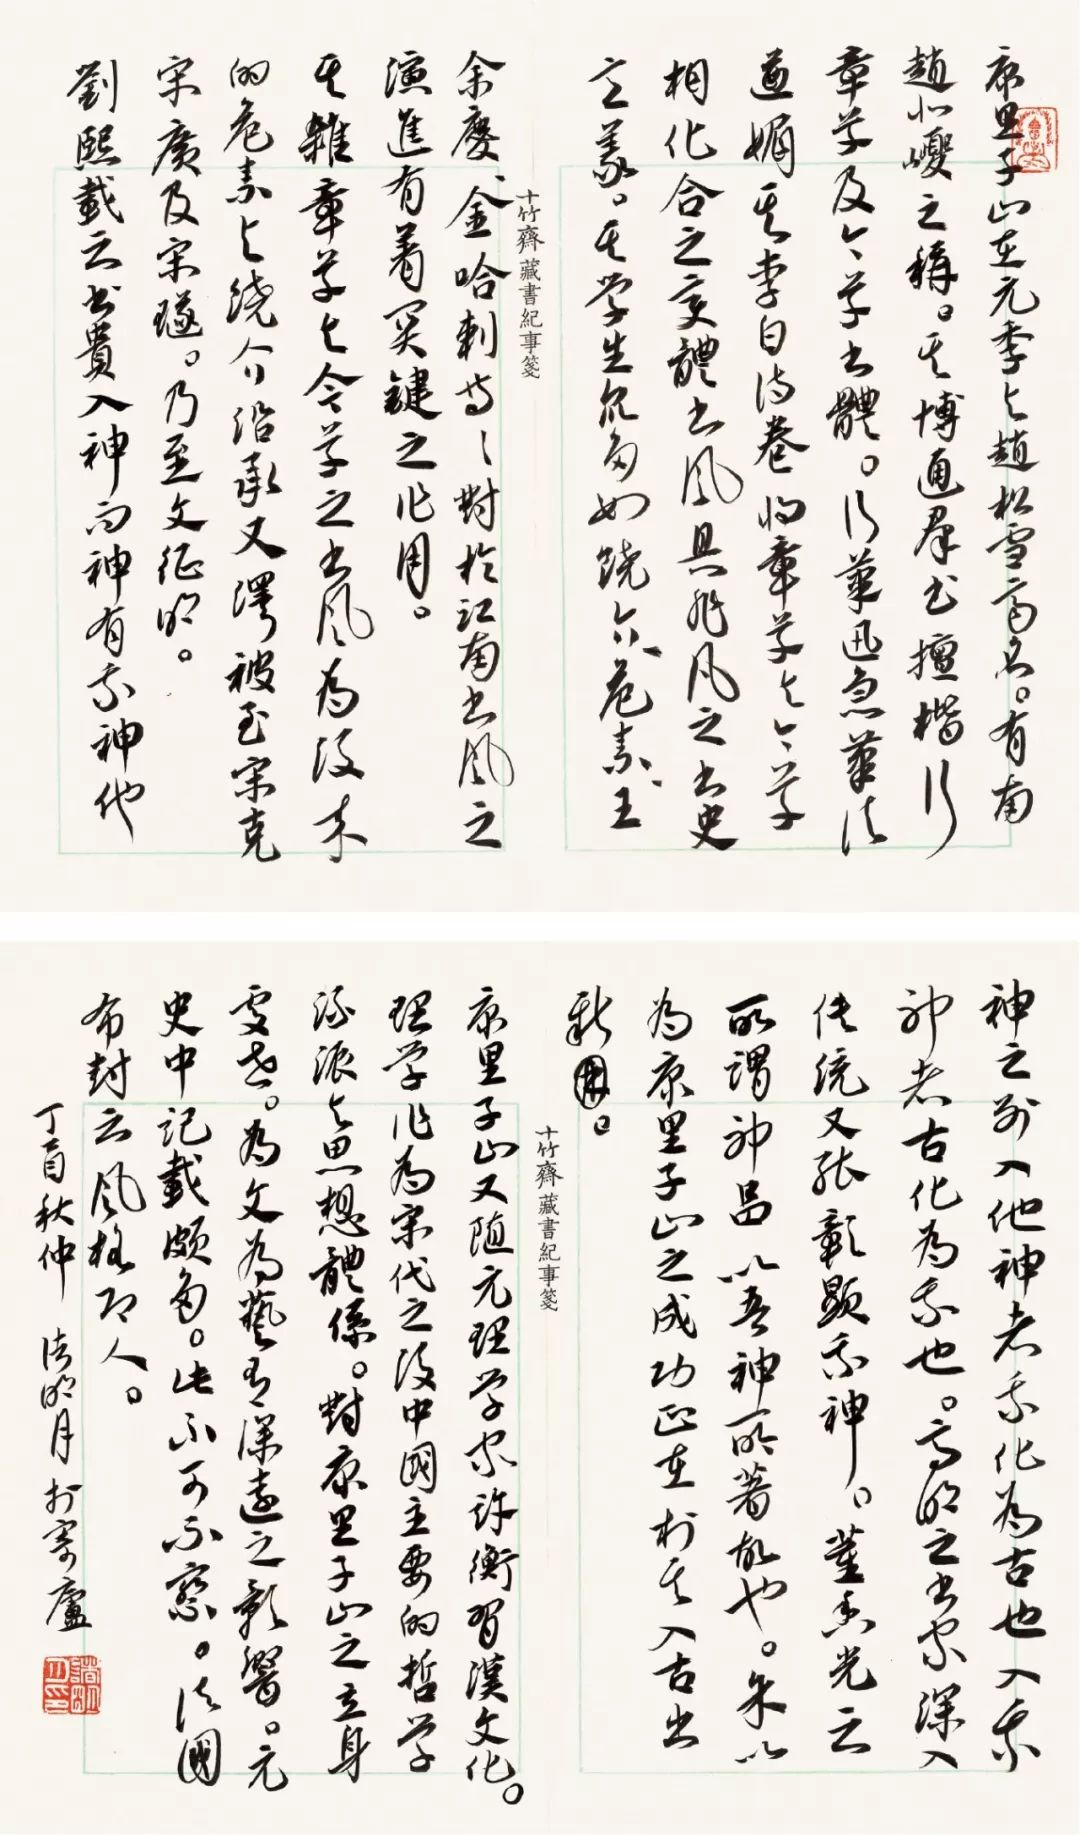 康里子山在元季与趙松雪高名。有南
趙北巎之稱。其博通群书擅楷行
章草及今草书體。行筆迅急筆法
遒媚其李白诗卷将章草与今草
相化合之变體书風具非凡之书史
意義。其学生众多如饒介、危素、王
十竹齋藏書紀事箋
余慶、金哈剌等等對於江南书風之
演進有着关鍵之作用。
其雜章草与今草之书風為後来
的危素与饒介沿承又澤被至宋克
宋廣及宋璲。乃至文征明。
劉熙載云书貴入神而神有我神他
神之别入他神者我化為古也入我
神者古化為我也。高明之书家深入
传統又能彰顯我神。董香光云
所謂神品以吾神所著故也。余以
為康里子山之成功正在於其入古出
新
十竹齋藏書紀事箋
康里子山又随元理学家許衡習漢文化。
理学作為宋代之後中國主要的哲学
流派与思想體係。對康里子山之立身
處世。為文為藝有深遠之影響。元
史中記載頗多。此不可不察。法國
布封云風格即人。
丁酉秋仲 诸明月於寄廬